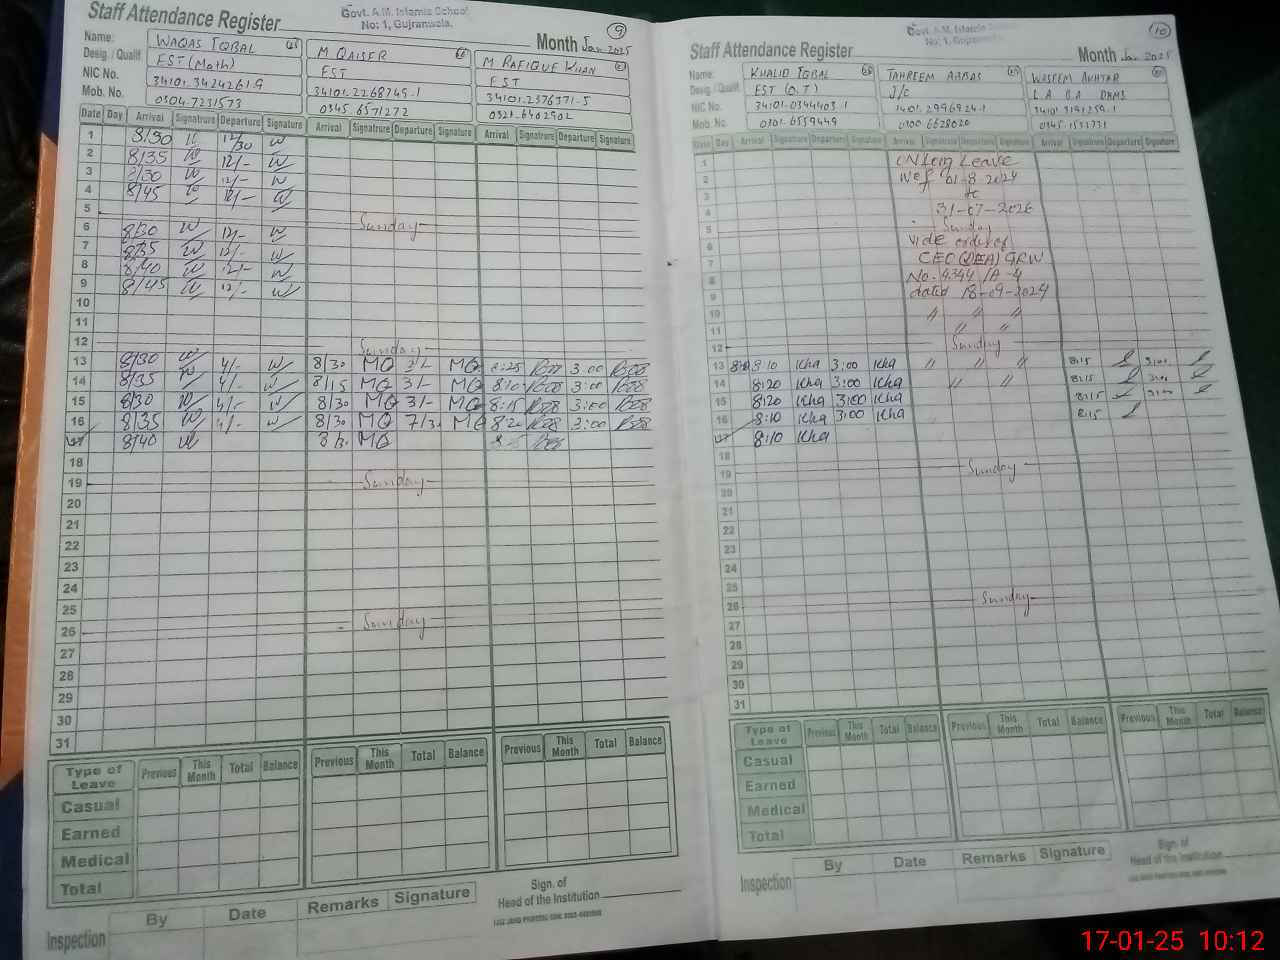 Staff Attendance Register
Govt. A.M. Islamic School
No: 1, Gujranwala.
9
Month Jan 2025
Name: WAQAS IQBAL M QAISER M RAFIQUE KHAN
Desig. / Qualif. EST (Math) EST EST
NIC No. 34101.3424261.9 34101.2268749.1 34101.2376371-5
Mob. No. 0304.7231573 0345.6571272 0321-6402902
Date Day Arrival Signatrure Departure Signature Arrival Signatrure Departure Signature Arrival Signatrure Departure Signature
1 8/30 12/30
2 8/35 12/-
3 8/30 12/-
4 8/45 12/-
5 Sunday
6 8/30 12/-
7 8/35 12/-
8 8/40 12/-
9 8/45 12/-
10
11
12 Sunday
13 8/30 4/- 8/30 MQ 3/- MQ 8:25 3:00
14 8/35 4/- 8/15 MQ 3/- MQ 8:10 3:00
15 8/30 4/- 8/30 MQ 3/- MQ 8:15 3:00
16 8/35 4/- 8/30 MQ MQ 3:00
17 8/40 MQ
18
19 Sunday
20
21
22
23
24
25
26 Sunday
27
28
29
30
31
Type of Leave Previous This Month Total Balance Previous This Month Total Balance Previous This Month Total Balance
Casual
Earned
Medical
Total
Inspection By Date Remarks Signature
Sign. of
Head of the Institution
Staff Attendance Register
Govt. A.M. Islamic
No: 1, Gujranwala
10
Month Jan 2025
Name: KHALID IQBAL TAHREEM ABBAS WASEEM AKHTAR
Desig. / Qualif. EST (O.T) J/C
NIC No. 34101-0344403.1
Mob. No. 0301.6559449 0300.6628020 0345.1531731
Date Day Arrival Signatrure Departure Signature Arrival Signatrure Departure Signature Arrival Signatrure Departure Signature
1 ON Long Leave
2 wef 01-8-2024
3 to
4 31-07-2026
5 Sunday
6 vide order of
7 CEO (DEA) GRW
8 No. 4344 /A-4
9 dated 18-09-2024
10 〃 〃 〃
11 〃 〃
12 Sunday
13 8:10 Kha 3:00 Kha 〃 〃 〃 8:15
14 8:20 Kha 3:00 Kha 〃 〃 8:15
15 8:20 Kha 3:00 Kha 8:15
16 8:10 Kha 3:00 Kha 8:15
17 8:10 Kha
18
19 Sunday
20
21
22
23
24
25
26 Sunday
27
28
29
30
31
Type of Leave Previous This Month Total Balance Previous This Month Total Balance Previous This Month Total Balance
Casual
Earned
Medical
Total
Inspection By Date Remarks Signature
Sign. of
Head of the Institution
17-01-25 10:12